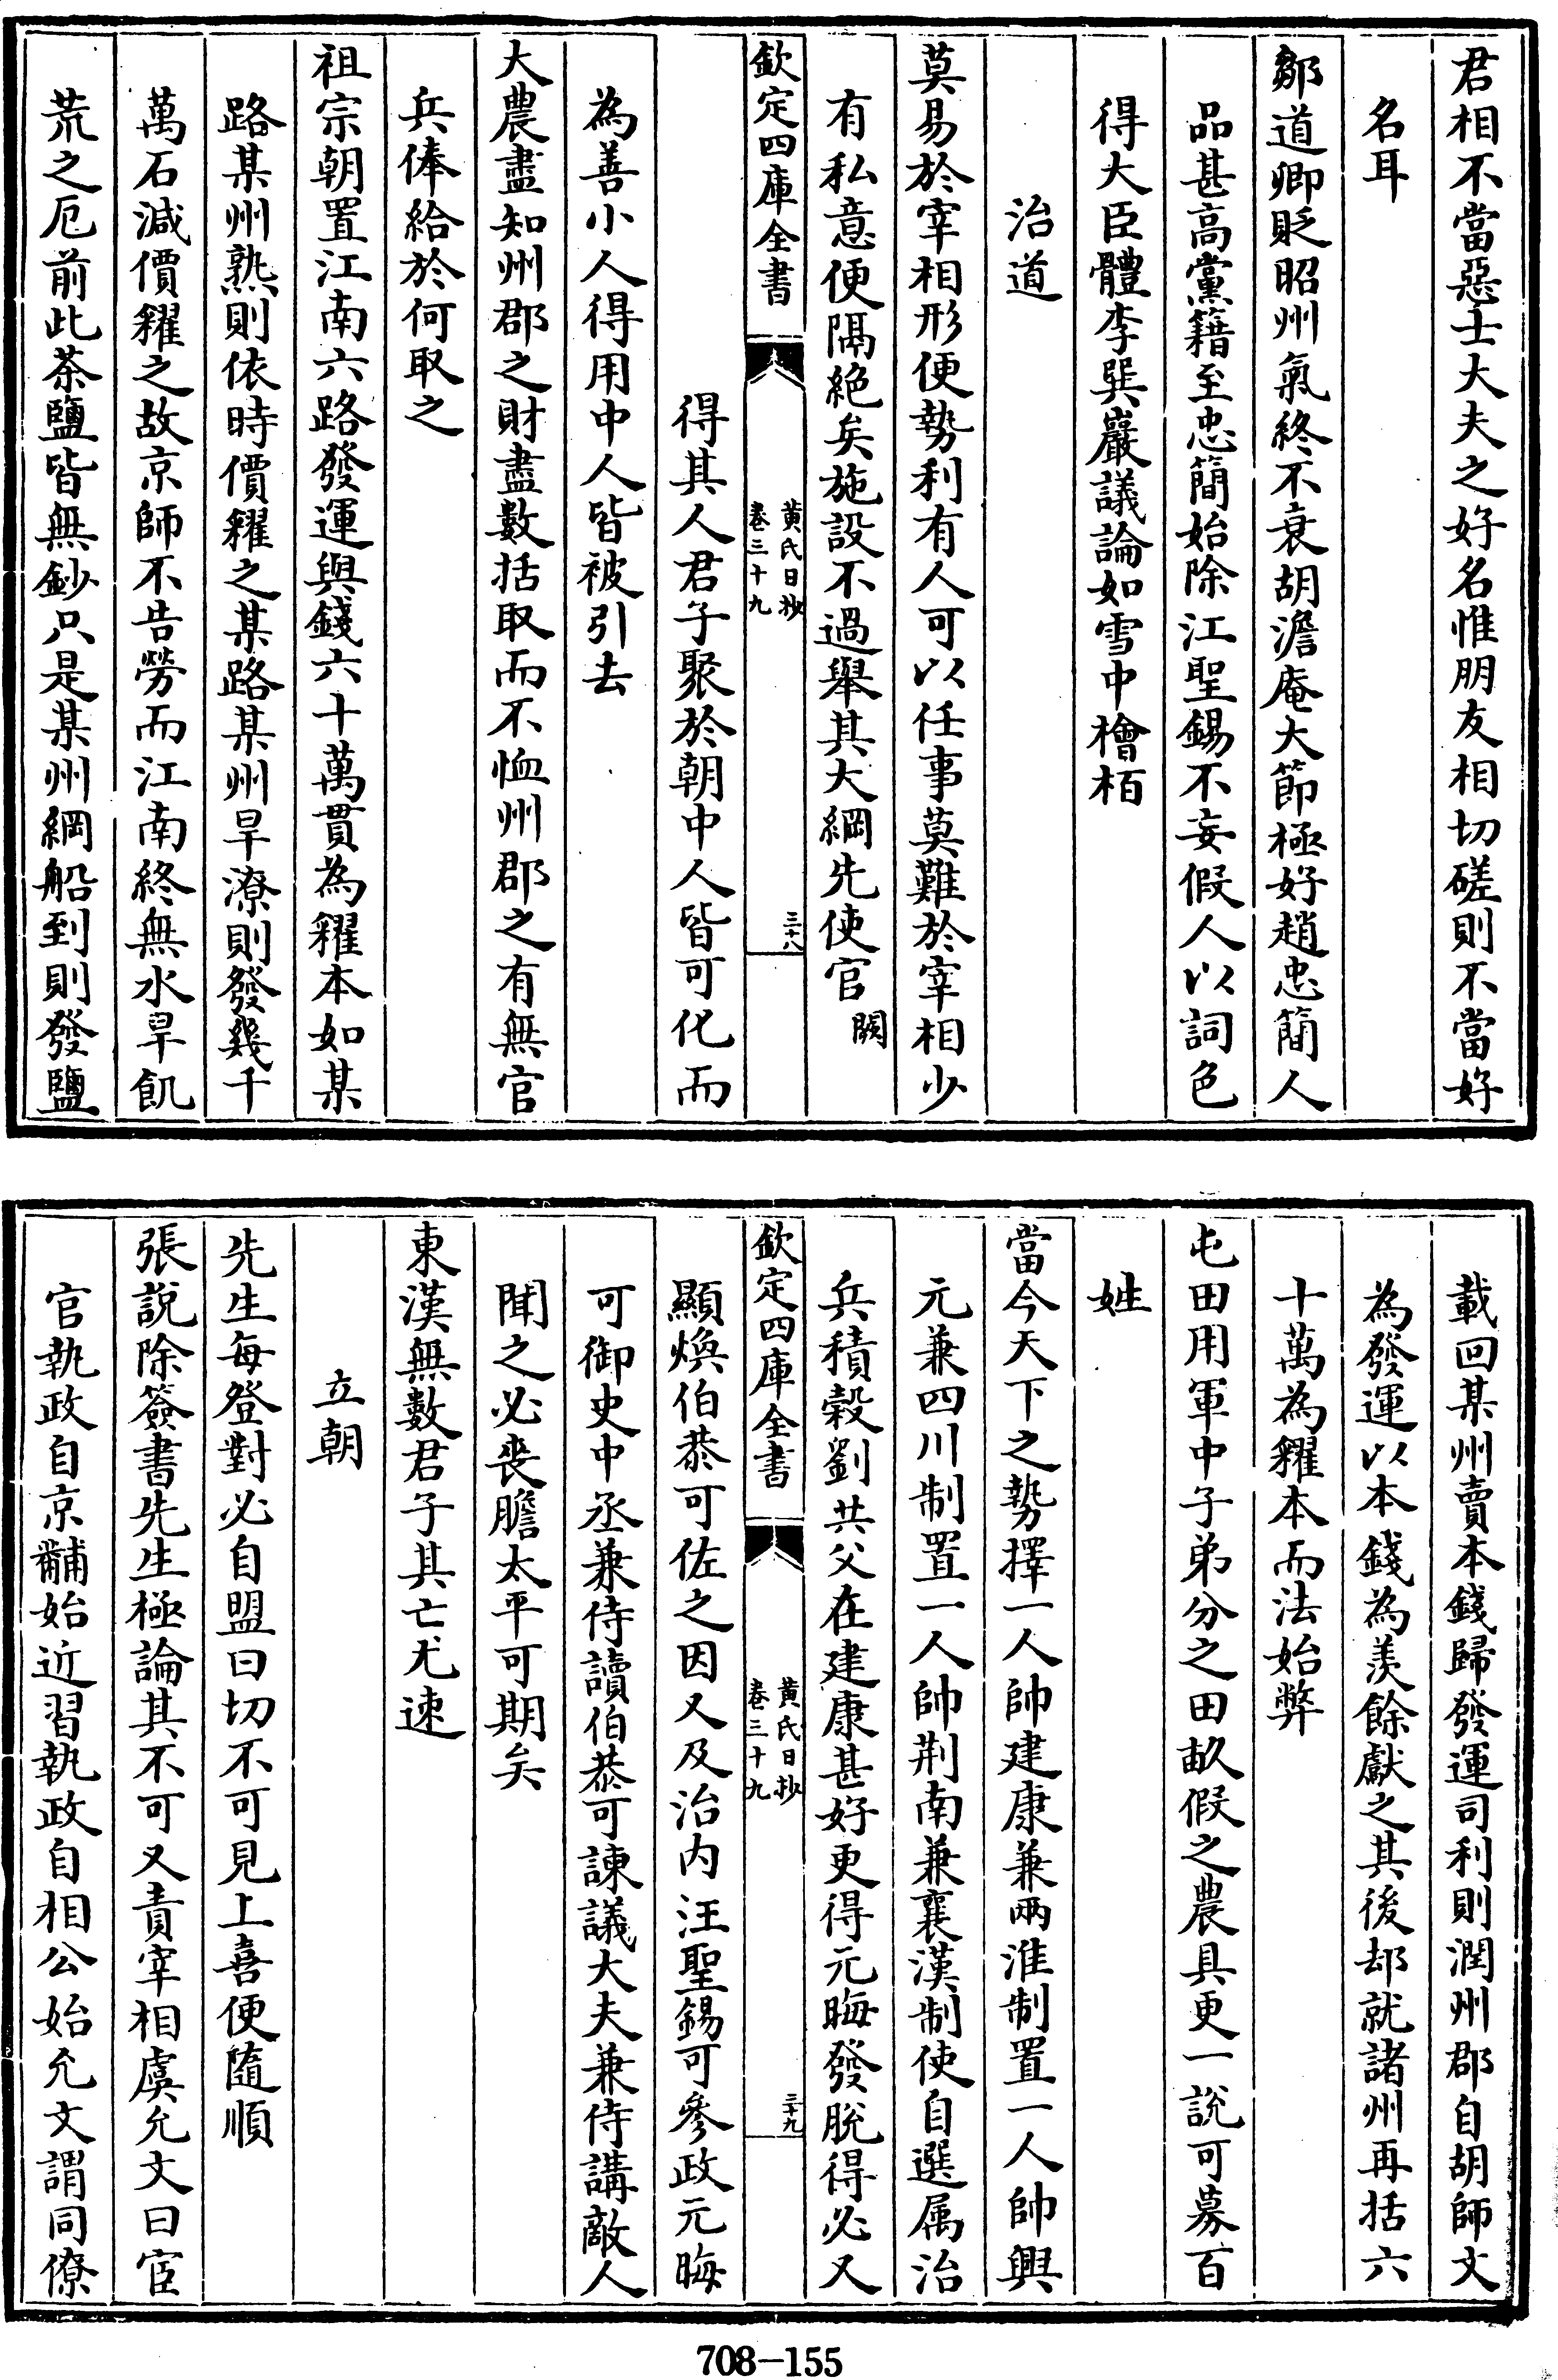 君相不當惡士大夫之好名惟朋友相切磋則不當好
名耳
鄒道卿貶昭州氣終不衰胡澹庵大節極好趙忠簡人
品甚高黨籍至忠簡始除江聖錫不妄假人以詞色
得大臣體李巽巖議論如雪中檜栢
治道
莫易於宰相形便勢利有人可以任事莫難於宰相少
有私意便隔絶矣施設不過舉其大綱先使官闕
欽定四庫全書
黄氏日抄
卷三十九
三十八
得其人君子聚於朝中人皆可化而
為善小人得用中人皆被引去
大農盡知州郡之財盡數括取而不恤州郡之有無官
兵俸給於何取之
祖宗朝置江南六路發運與錢六十萬貫為糴本如某
路某州熟則依時價糴之某路某州旱潦則發幾千
萬石減價糴之故京師不告勞而江南終無水旱飢
荒之厄前此茶鹽皆無鈔只是某州綱船到則發鹽
載回某州賣本錢歸發運司利則潤州郡自胡師文
為發運以本錢為羨餘獻之其後却就諸州再括六
十萬為糴本而法始弊
屯田用軍中子弟分之田畝假之農具更一說可募百
姓
當今天下之勢擇一人帥建康兼兩淮制置一人帥興
元兼四川制置一人帥荆南兼襄漢制使自選属治
兵積穀劉共父在建康甚好更得元晦發脫得必又
欽定四庫全書
黄氏日抄
卷三十九
三十九
顯煥伯恭可佐之因又及治内汪聖錫可參政元晦
可御史中丞兼侍讀伯恭可諫議大夫兼侍講敵人
聞之必喪膽太平可期矣
東漢無數君子其亡尤速
立朝
先生每登對必自盟曰切不可見上喜便隨順
張說除簽書先生極論其不可又責宰相虞允文曰宦
官執政自京黼始近習執政自相公始允文謂同僚
708—155